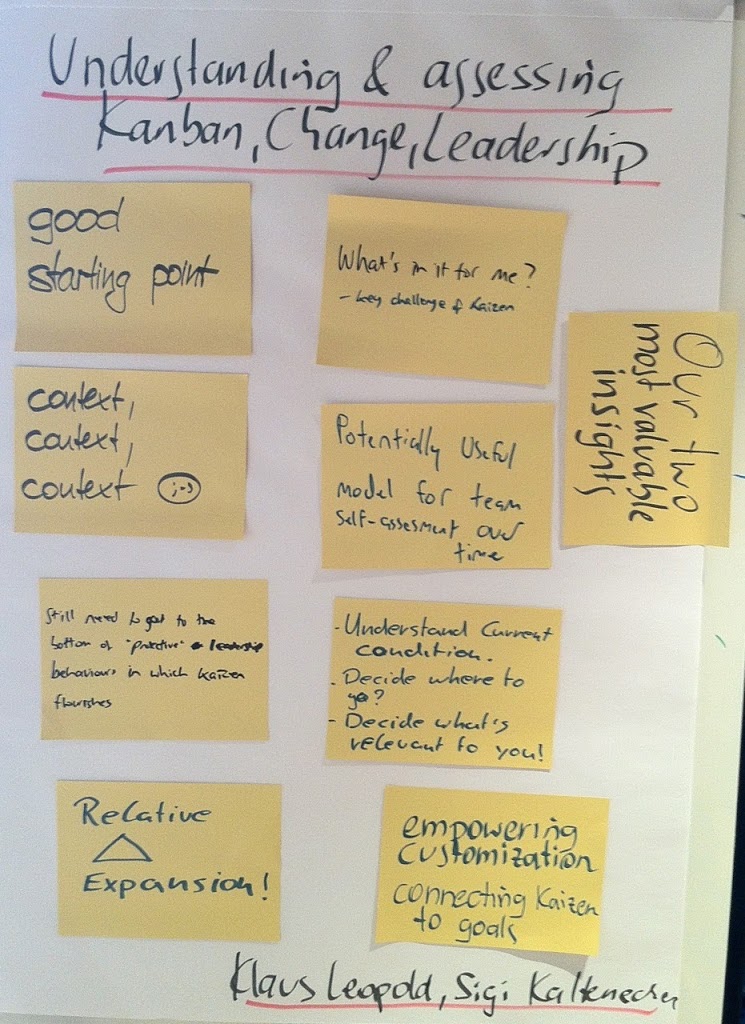 Understanding & assessing
Kanban, Change, Leadership
good
starting point
What's in it for me?
- key challenge of Kaizen
Our two
most valuable
insights
context,
context,
context ;-)
Potentially Useful
model for team
self-assesment over
time
Still need to get to the
bottom of "protective" leadership
behaviours in which Kaizen
flourishes
- Understand Current
condition.
- Decide where to
go?
- Decide what's
relevant to you!
Relative
Expansion!
empowering
customization
connecting Kaizen
to goals
Klaus Leopold, Sigi Kaltenecker